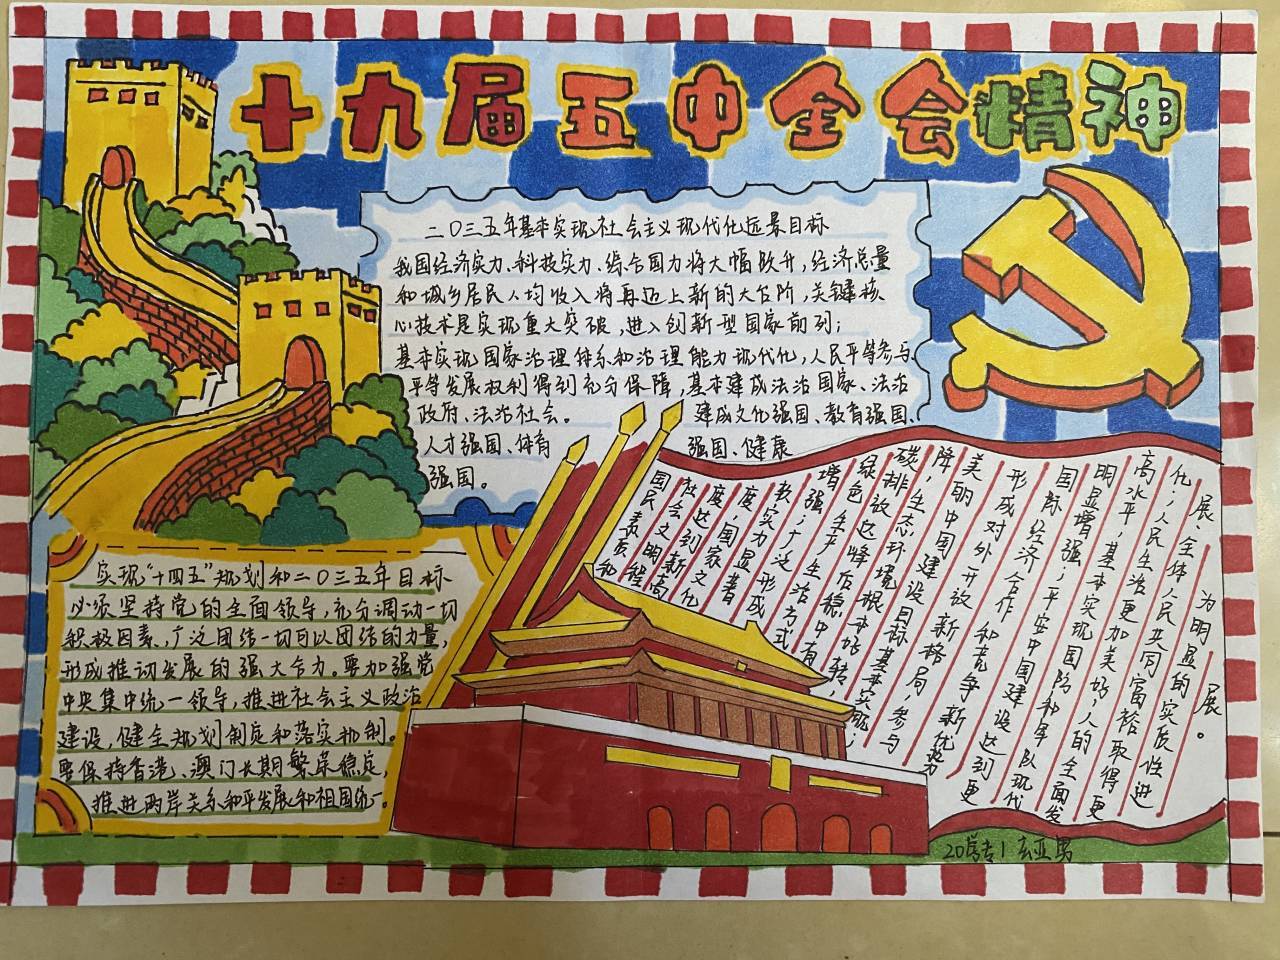 十九届五中全会精神
二〇三五年基本实现社会主义现代化远景目标
我国经济实力、科技实力、综合国力将大幅跃升,经济总量
和城乡居民人均收入将再迈上新的大台阶,关键核
心技术是实现重大突破,进入创新型国家前列;
基本实现国家治理体系和治理能力现代化,人民平等参与、
平等发展权利得到充分保障,基本建成法治国家、法治
政府、法治社会。 建成文化强国、教育强国、
人才强国、体育 强国、健康
强国。
国民素质和
社会文明程
度达到新高
度,国家文化
软实力显著
增强;广泛形成
绿色生产生活方式,
碳排放达峰后稳中有
降,生态环境根本好转,
美丽中国建设目标基本实现;
形成对外开放新格局,参与
国际经济合作和竞争新优势
明显增强;平安中国建设达到更
高水平,基本实现国防和军队现代
化;人民生活更加美好,人的全面发
展、全体人民共同富裕取得更
为明显的实质性进
展。
实现“十四五”规划和二〇三五年目标
必须坚持党的全面领导,充分调动一切
积极因素,广泛团结一切可以团结的力量,
形成推动发展的强大合力。要加强党
中央集中统一领导,推进社会主义政治
建设,健全规划制定和落实机制。
要保持香港、澳门长期繁荣稳定,
推进两岸关系和平发展和祖国统一。